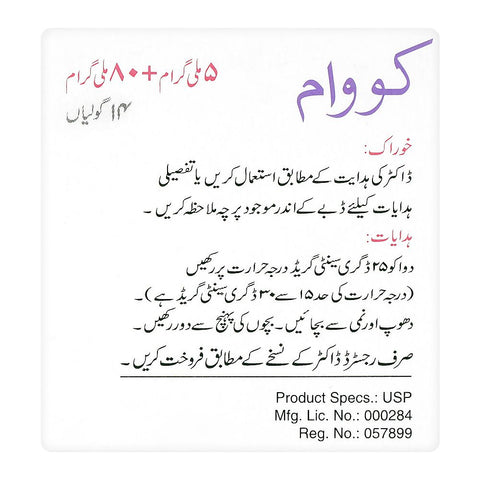 کووام
۵ ملی گرام + ۸۰ ملی گرام
۱۴ گولیاں
خوراک:
ڈاکٹر کی ہدایت کے مطابق استعمال کریں یا تفصیلی
ہدایات کیلئے ڈبے کے اندر موجود پرچہ ملاحظہ کریں ۔
ہدایات:
دوا کو ۲۵ ڈگری سینٹی گریڈ درجہ حرارت پر رکھیں
(درجہ حرارت کی حد ۱۵ سے ۳۰ ڈگری سینٹی گریڈ ہے)۔
دھوپ اور نمی سے بچائیں۔ بچوں کی پہنچ سے دور رکھیں۔
صرف رجسٹرڈ ڈاکٹر کے نسخے کے مطابق فروخت کریں۔
Product Specs.: USP
Mfg. Lic. No.: 000284
Reg. No.: 057899